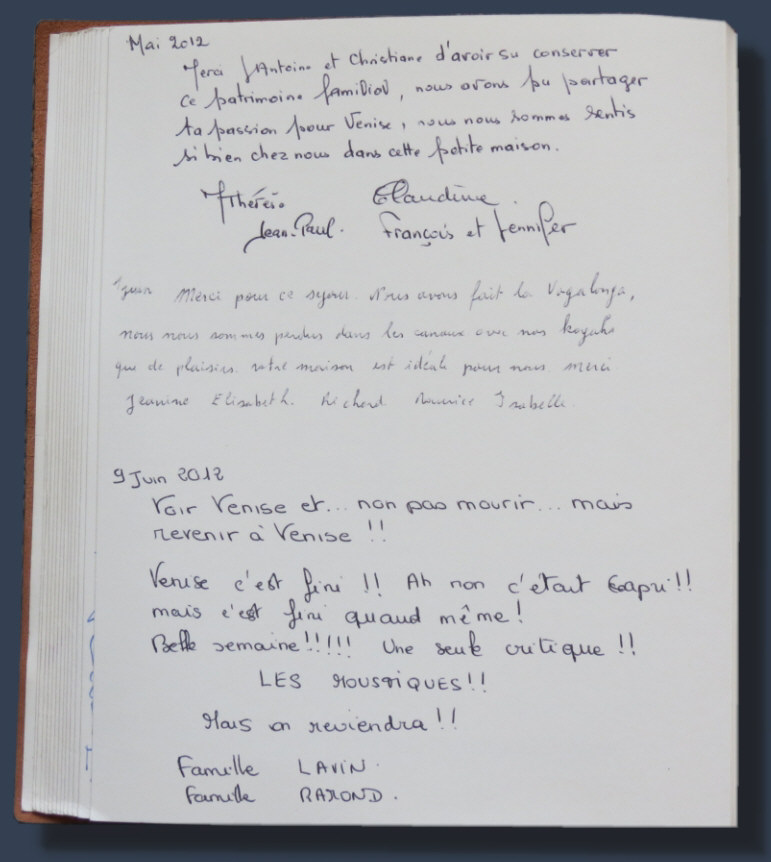 Mai 2012
Merci Antoine et Christiane d'avoir su conserver
ce patrimoine familial, nous avons pu partager
ta passion pour Venise, nous nous sommes sentis
si bien chez nous dans cette petite maison.
Thérèse Claudine
Jean-Paul. François et Jennifer
juin Merci pour ce sejour. Nous avons fait la Vogalonga,
nous nous sommes perdus dans les canaux avec nos kayaks
que de plaisirs. votre maison est idéale pour nous. merci
Jeanine Elisabeth. Richard Maurice Isabelle
9 Juin 2012
Voir Venise et... non pas mourir... mais
revenir à Venise !!
Venise c'est fini !! Ah non c'était Capri !!
mais c'est fini quand même !
Belle semaine !!!!! Une seule critique !!
LES MOUSTIQUES !!
Mais on reviendra !!
Famille LAVIN.
Famille